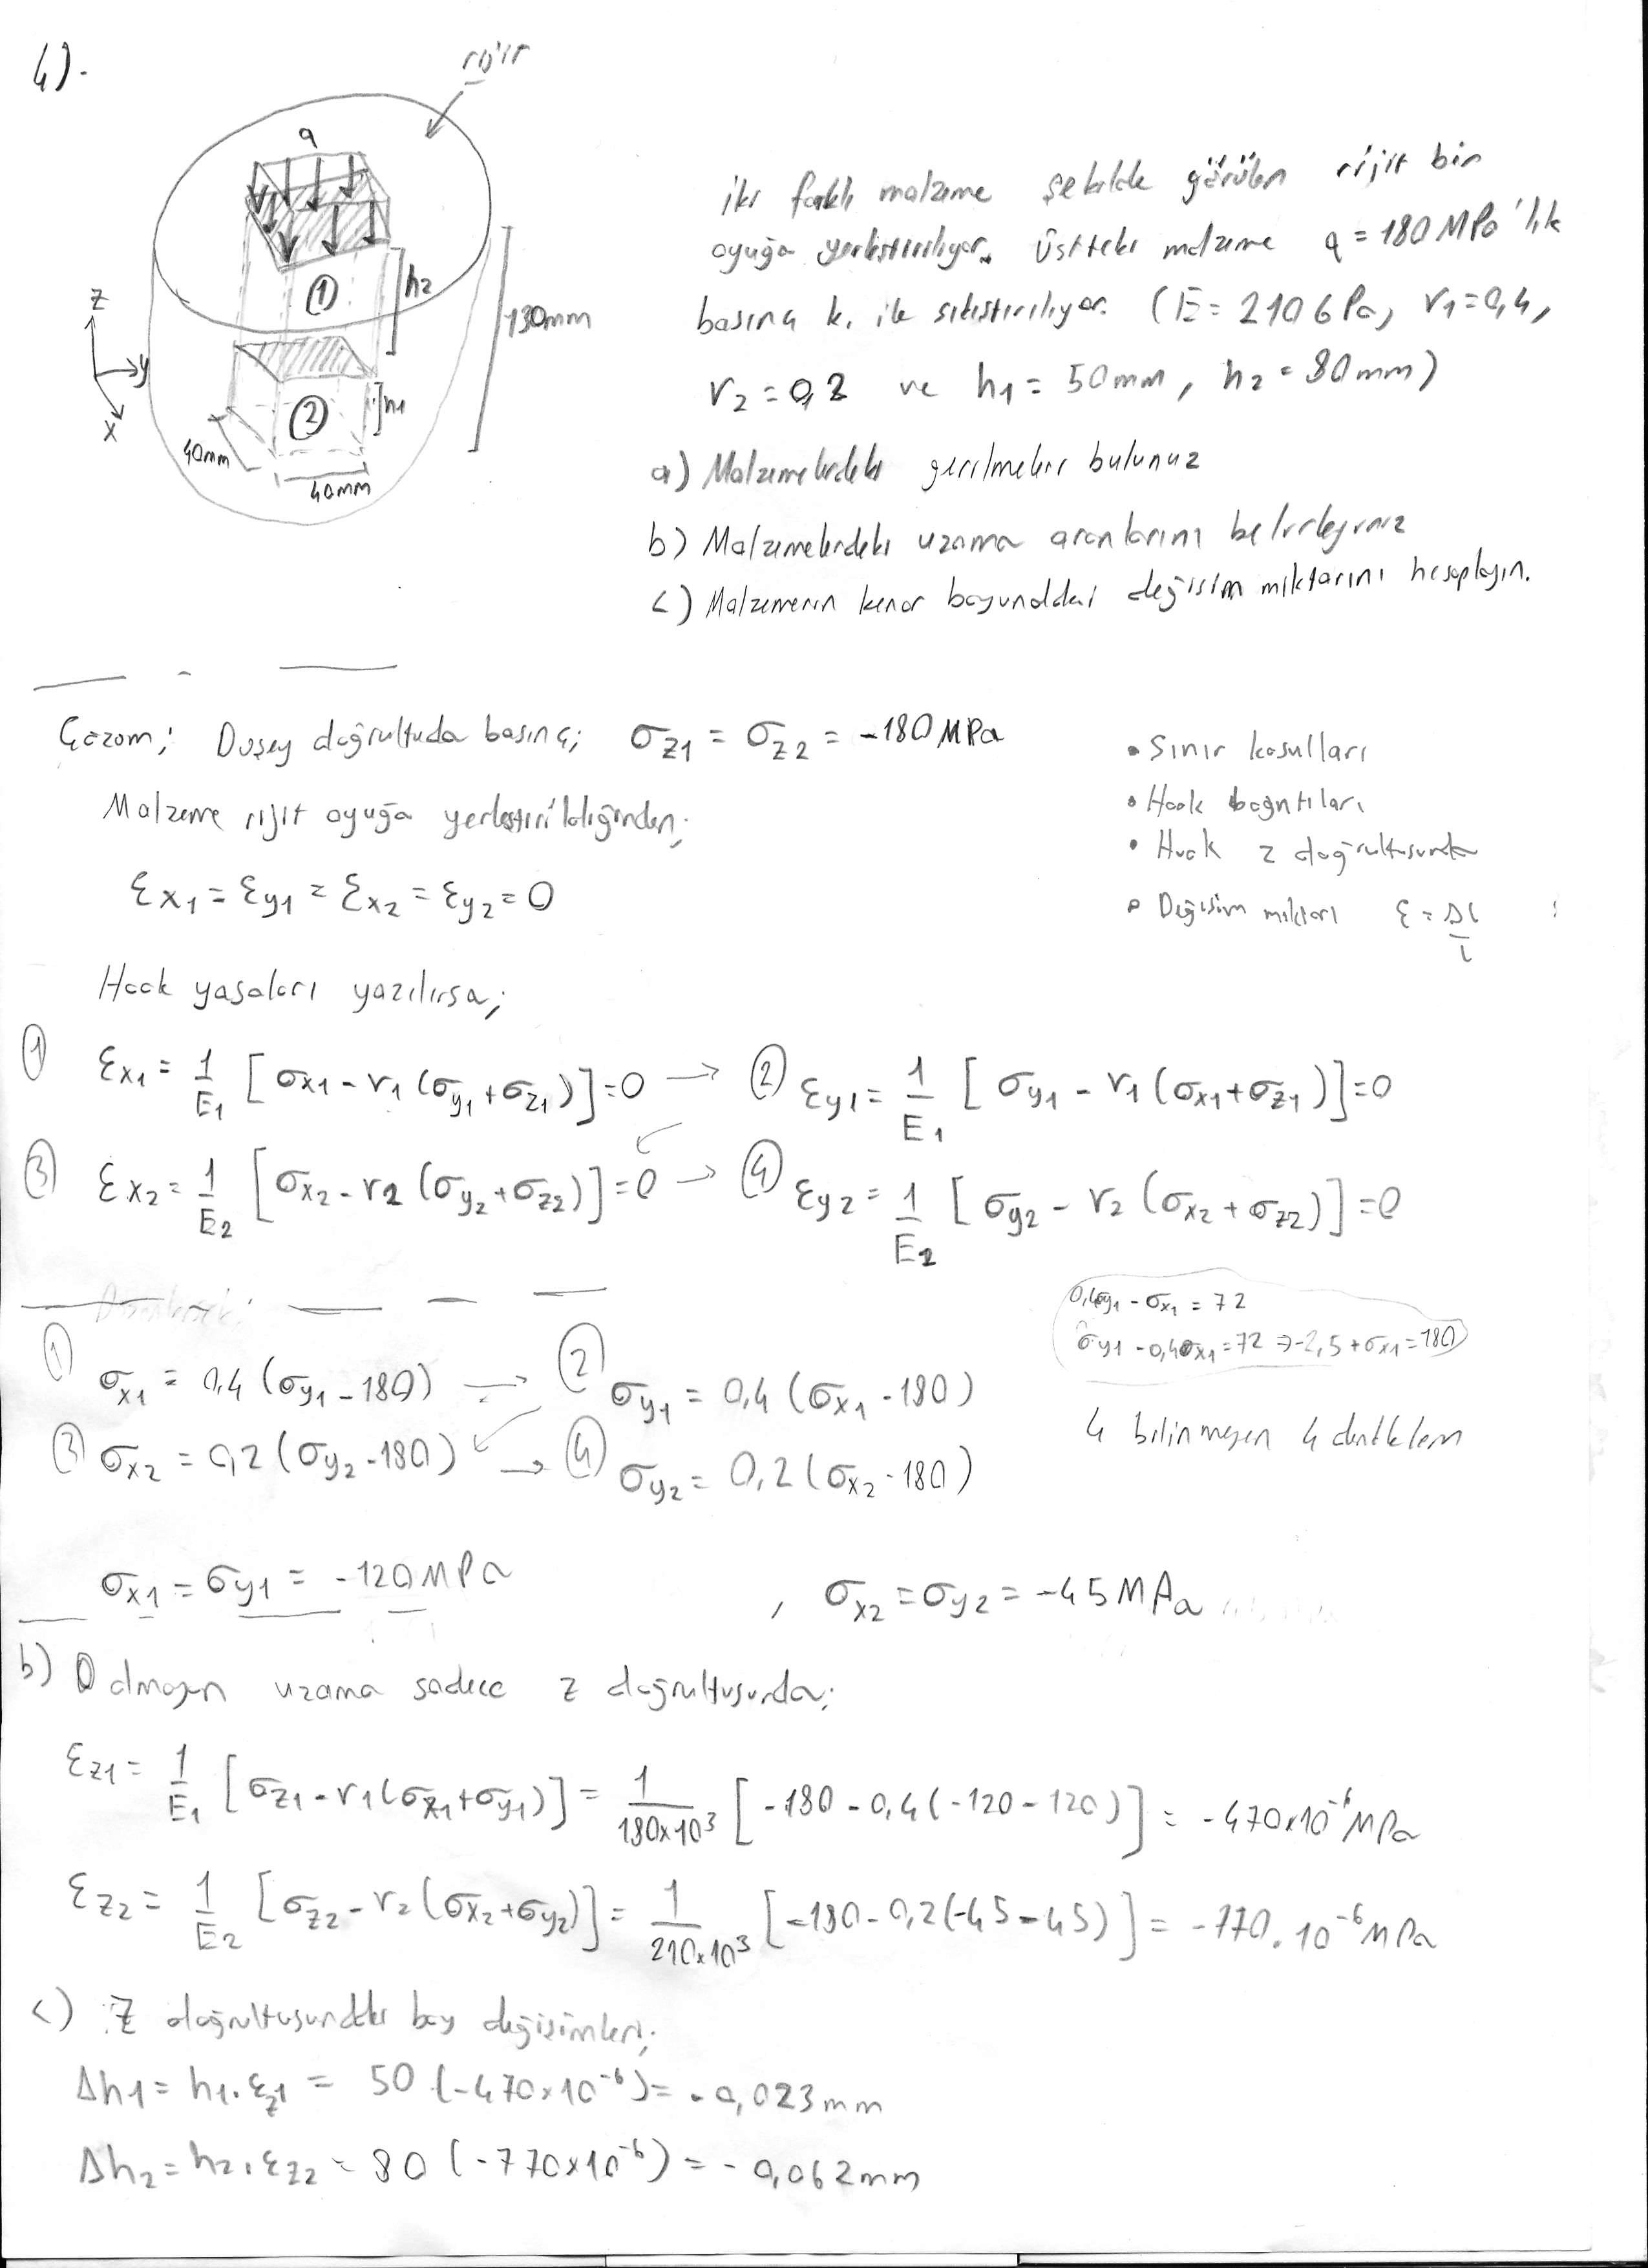 4).
rijit
q
①
h2
130mm
②
h1
z
y
x
40mm
40mm
iki farklı malzeme şekilde görülen rijit bir
oyuğa yerleştiriliyor. Üstteki malzeme q = 180 MPa'lık
basınç k. ile sıkıştırılıyor. (E = 210 GPa, ν1 = 0,4,
ν2 = 0,2 ve h1 = 50mm, h2 = 80mm)
a) Malzemelerdeki gerilmeleri bulunuz
b) Malzemelerdeki uzama oranlarını belirleyiniz
c) Malzemenin kenar boyundaki değişim miktarını hesaplayın.
Çözüm; Düşey doğrultuda basınç; σz1 = σz2 = -180 MPa
Malzeme rijit oyuğa yerleştirildiğinden;
εx1 = εy1 = εx2 = εy2 = 0
• Sınır koşulları
• Hook bağıntıları
• Hook z doğrultusunda
• Değişim miktarı ε = Δl/l
Hook yasaları yazılırsa;
① εx1 = 1/E1 [σx1 - ν1 (σy1 + σz1)] = 0 → ② εy1 = 1/E1 [σy1 - ν1 (σx1 + σz1)] = 0
③ εx2 = 1/E2 [σx2 - ν2 (σy2 + σz2)] = 0 → ④ εy2 = 1/E2 [σy2 - ν2 (σx2 + σz2)] = 0
0,4σy1 - σx1 = 72
σy1 - 0,4σx1 = 72 ⇒ -2,5 + σx1 = 180
① σx1 = 0,4 (σy1 - 180) → ② σy1 = 0,4 (σx1 - 180)
③ σx2 = 0,2 (σy2 - 180) → ④ σy2 = 0,2 (σx2 - 180)
4 bilinmeyen 4 denklem
σx1 = σy1 = -120 MPa , σx2 = σy2 = -45 MPa
b) 0 olmayan uzama sadece z doğrultusunda;
εz1 = 1/E1 [σz1 - ν1 (σx1 + σy1)] = 1/180x10³ [-180 - 0,4 (-120 - 120)] = -470x10⁻⁶ MPa
εz2 = 1/E2 [σz2 - ν2 (σx2 + σy2)] = 1/210x10³ [-180 - 0,2 (-45 - 45)] = -770.10⁻⁶ MPa
c) Z doğrultusundaki boy değişimleri;
Δh1 = h1.εz1 = 50 (-470x10⁻⁶) = -0,023mm
Δh2 = h2.εz2 = 80 (-770x10⁻⁶) = -0,062mm